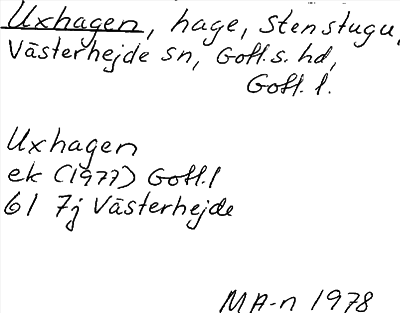 Uxhagen, hage, Stenstugu,
Västerhejde sn, Gotl. s. hd,
Gotl. l.
Uxhagen
ek (1977) Gotl. l
6I 7j Västerhejde
MA-n 1978